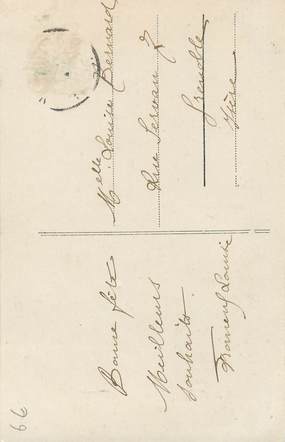 Bonne fête
Meilleurs
souhaits.
Louise
Melle Louise Bernard
Rue Servan 7
Grenoble
Isère
66